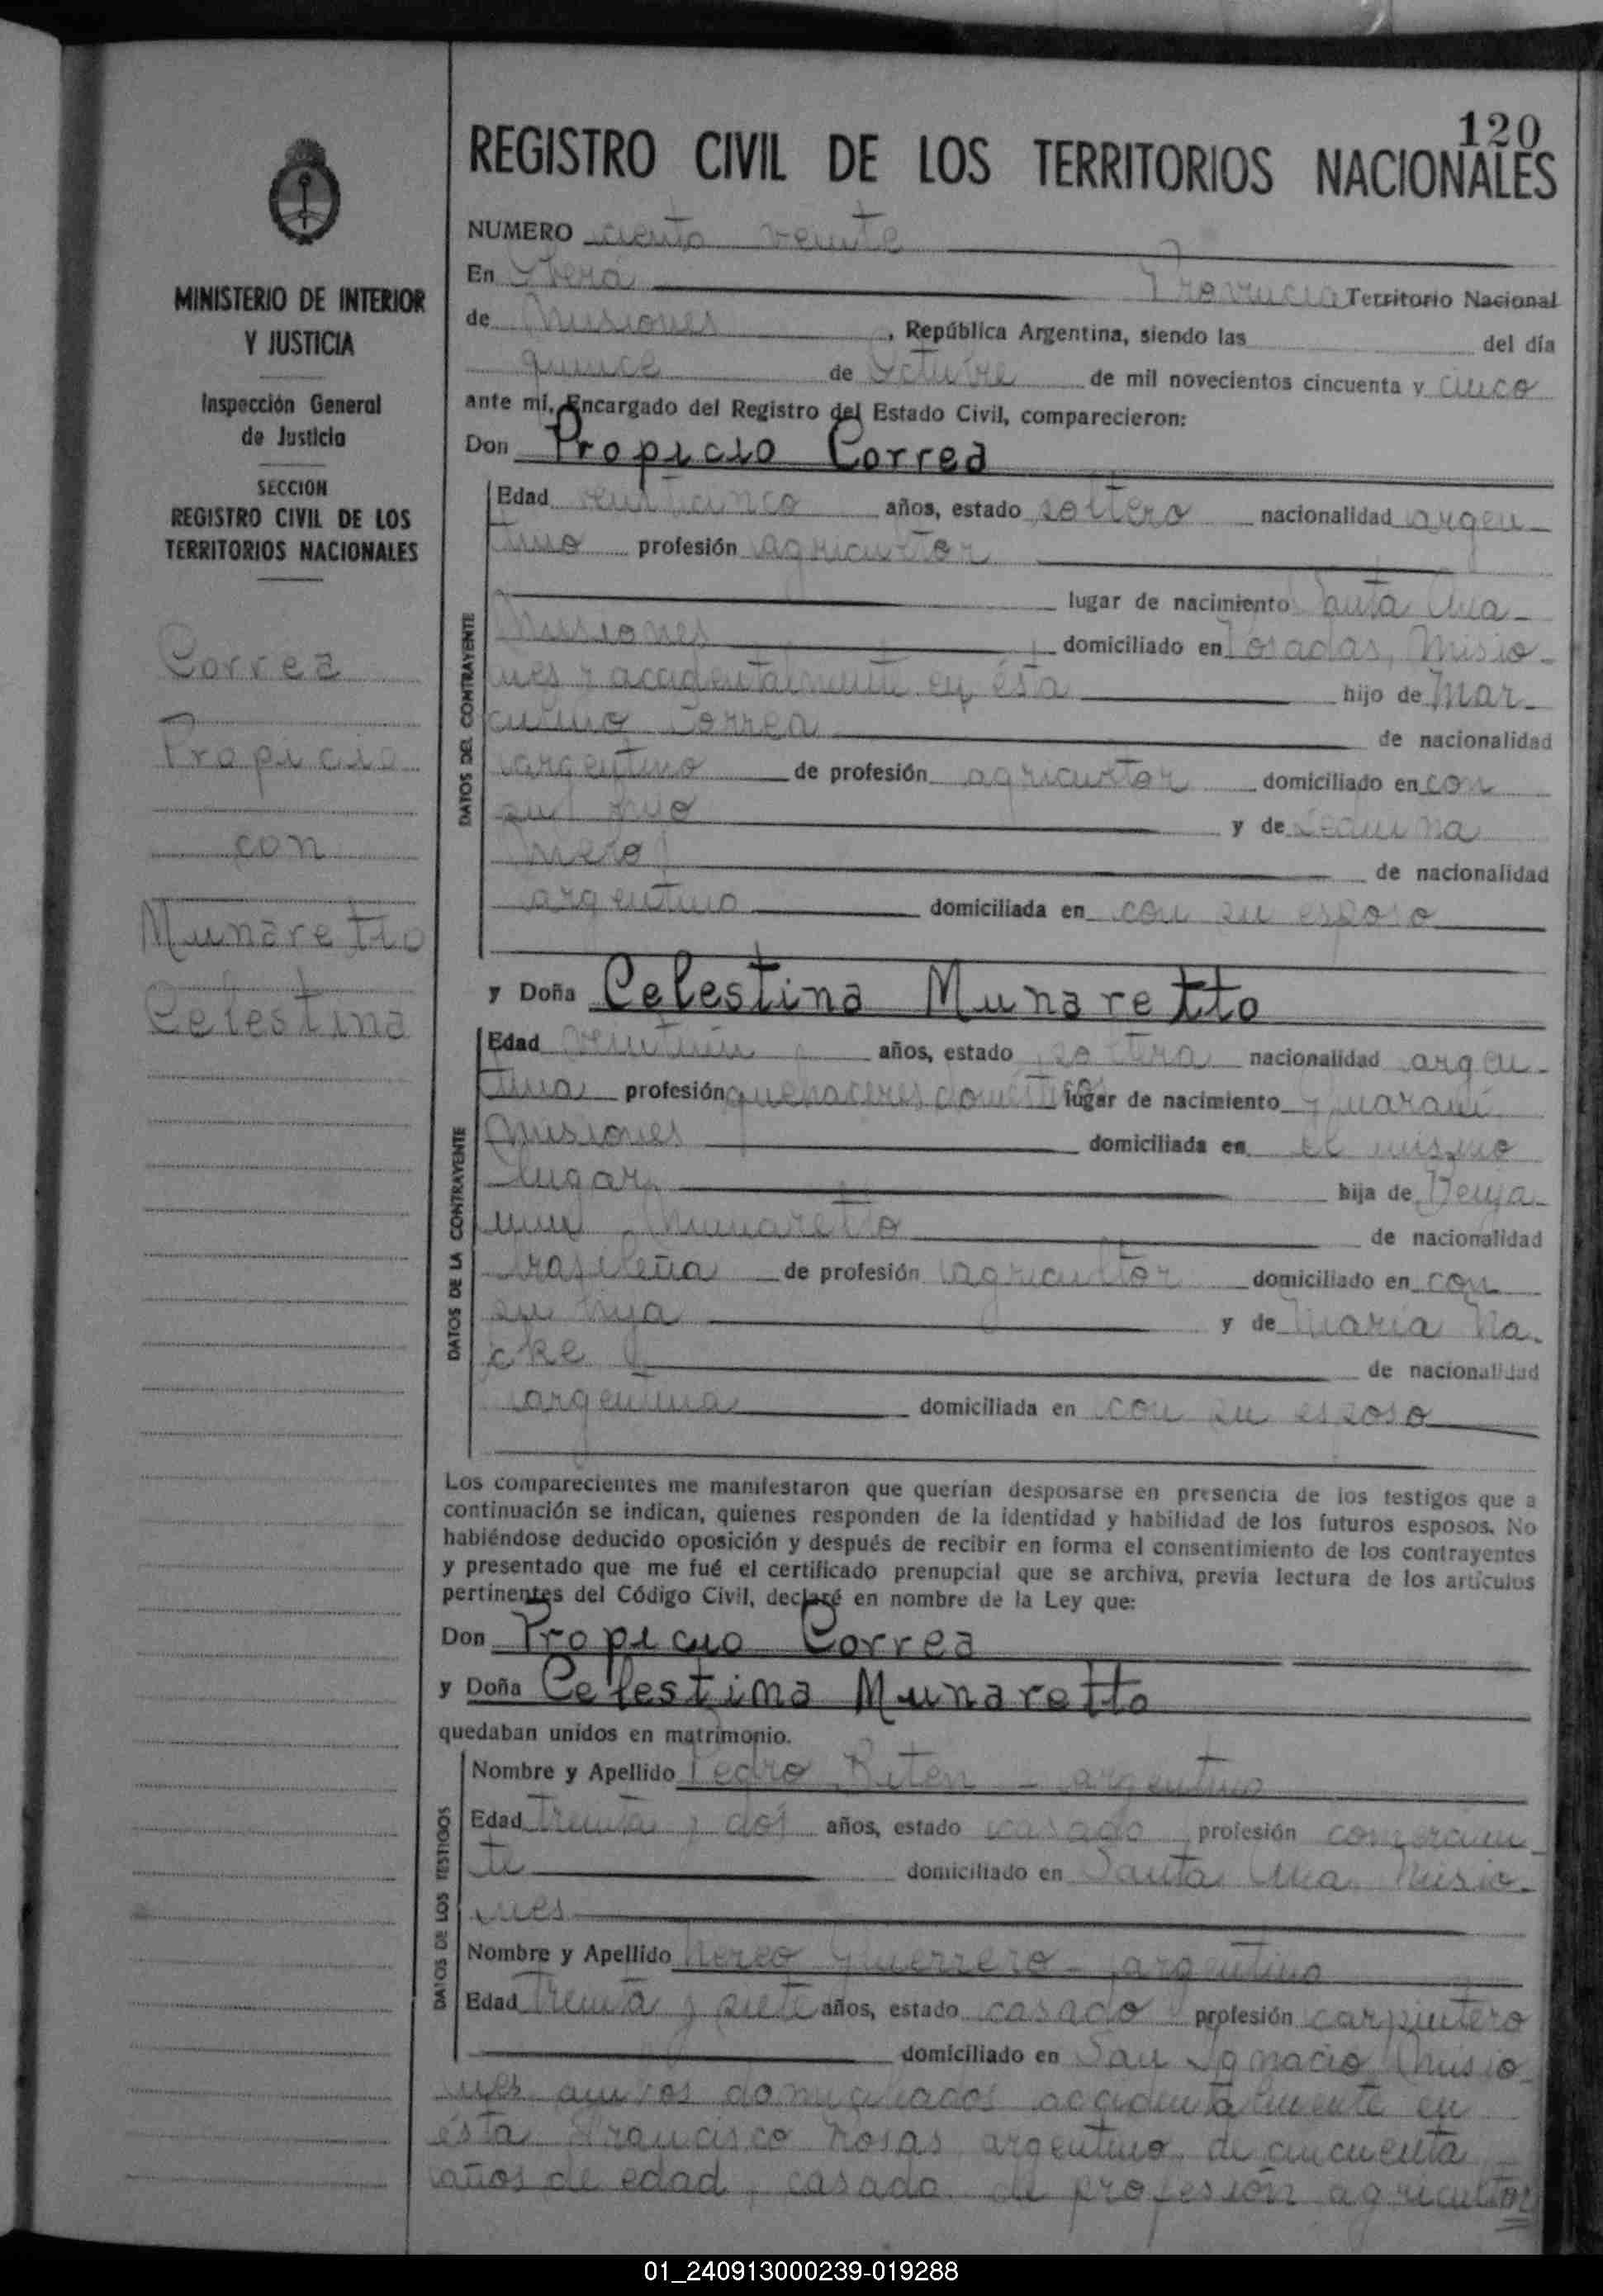 120
REGISTRO CIVIL DE LOS TERRITORIOS NACIONALES
MINISTERIO DE INTERIOR
Y JUSTICIA
Inspección General
de Justicia
SECCION
REGISTRO CIVIL DE LOS
TERRITORIOS NACIONALES
Correa
Propicio
con
Munaretto
Celestina
NUMERO ciento veinte
En Oberá Provincia Territorio Nacional
de Misiones, República Argentina, siendo las del día
quince de Octubre de mil novecientos cincuenta y cinco
ante mí, Encargado del Registro del Estado Civil, comparecieron:
Don Propicio Correa
DATOS DEL CONTRAYENTE
Edad veinticinco años, estado soltero nacionalidad argen-
tino profesión agricultor
lugar de nacimiento Santa Ana-
Misiones domiciliado en Posadas, Misio-
nes y accidentalmente en ésta hijo de Mar-
culino Correa de nacionalidad
argentino de profesión agricultor domiciliado en con
su hijo y de
de nacionalidad
argentino domiciliada en con su esposo
y Doña Celestina Munaretto
DATOS DE LA CONTRAYENTE
Edad años, estado soltera nacionalidad argen-
tina profesión quehaceres domésticos lugar de nacimiento Guaraní
Misiones domiciliada en el mismo
lugar hija de Benja-
min Munaretto de nacionalidad
brasileña de profesión agricultor domiciliado en con
su hija y de María
de nacionalidad
argentina domiciliada en con su esposo
Los comparecientes me manifestaron que querían desposarse en presencia de los testigos que a
continuación se indican, quienes responden de la identidad y habilidad de los futuros esposos. No
habiéndose deducido oposición y después de recibir en forma el consentimiento de los contrayentes
y presentado que me fué el certificado prenupcial que se archiva, previa lectura de los artículos
pertinentes del Código Civil, declaré en nombre de la Ley que:
Don Propicio Correa
y Doña Celestina Munaretto
quedaban unidos en matrimonio.
DATOS DE LOS TESTIGOS
Nombre y Apellido Pedro - argentino
Edad treinta y dos años, estado casado profesión comercian-
te domiciliado en Santa Ana Misio-
nes
Nombre y Apellido Nereo Guerrero - argentino
Edad treinta y siete años, estado casado profesión carpintero
domiciliado en San Ignacio Misio-
nes ambos domiciliados accidentalmente en
ésta Francisco Rosas argentino de cincuenta
años de edad, casado de profesión agricultor
01_240913000239-019288